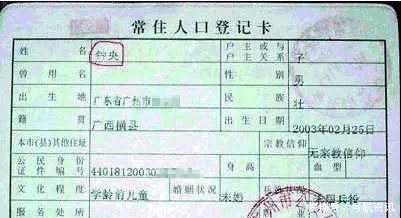 常住人口登记卡
姓名 钟央 户主或与户主关系 子
曾用名 性别 男
出生地 广东省广州市 民族 壮
籍贯 广西横县 出生日期 2003年02月25日
本市(县)其他住址 宗教信仰 无宗教信仰
公民身份证件编号 44018120030 身高 血型
文化程度 学龄前儿童 婚姻状况 未婚 兵役
服务处所
州市公